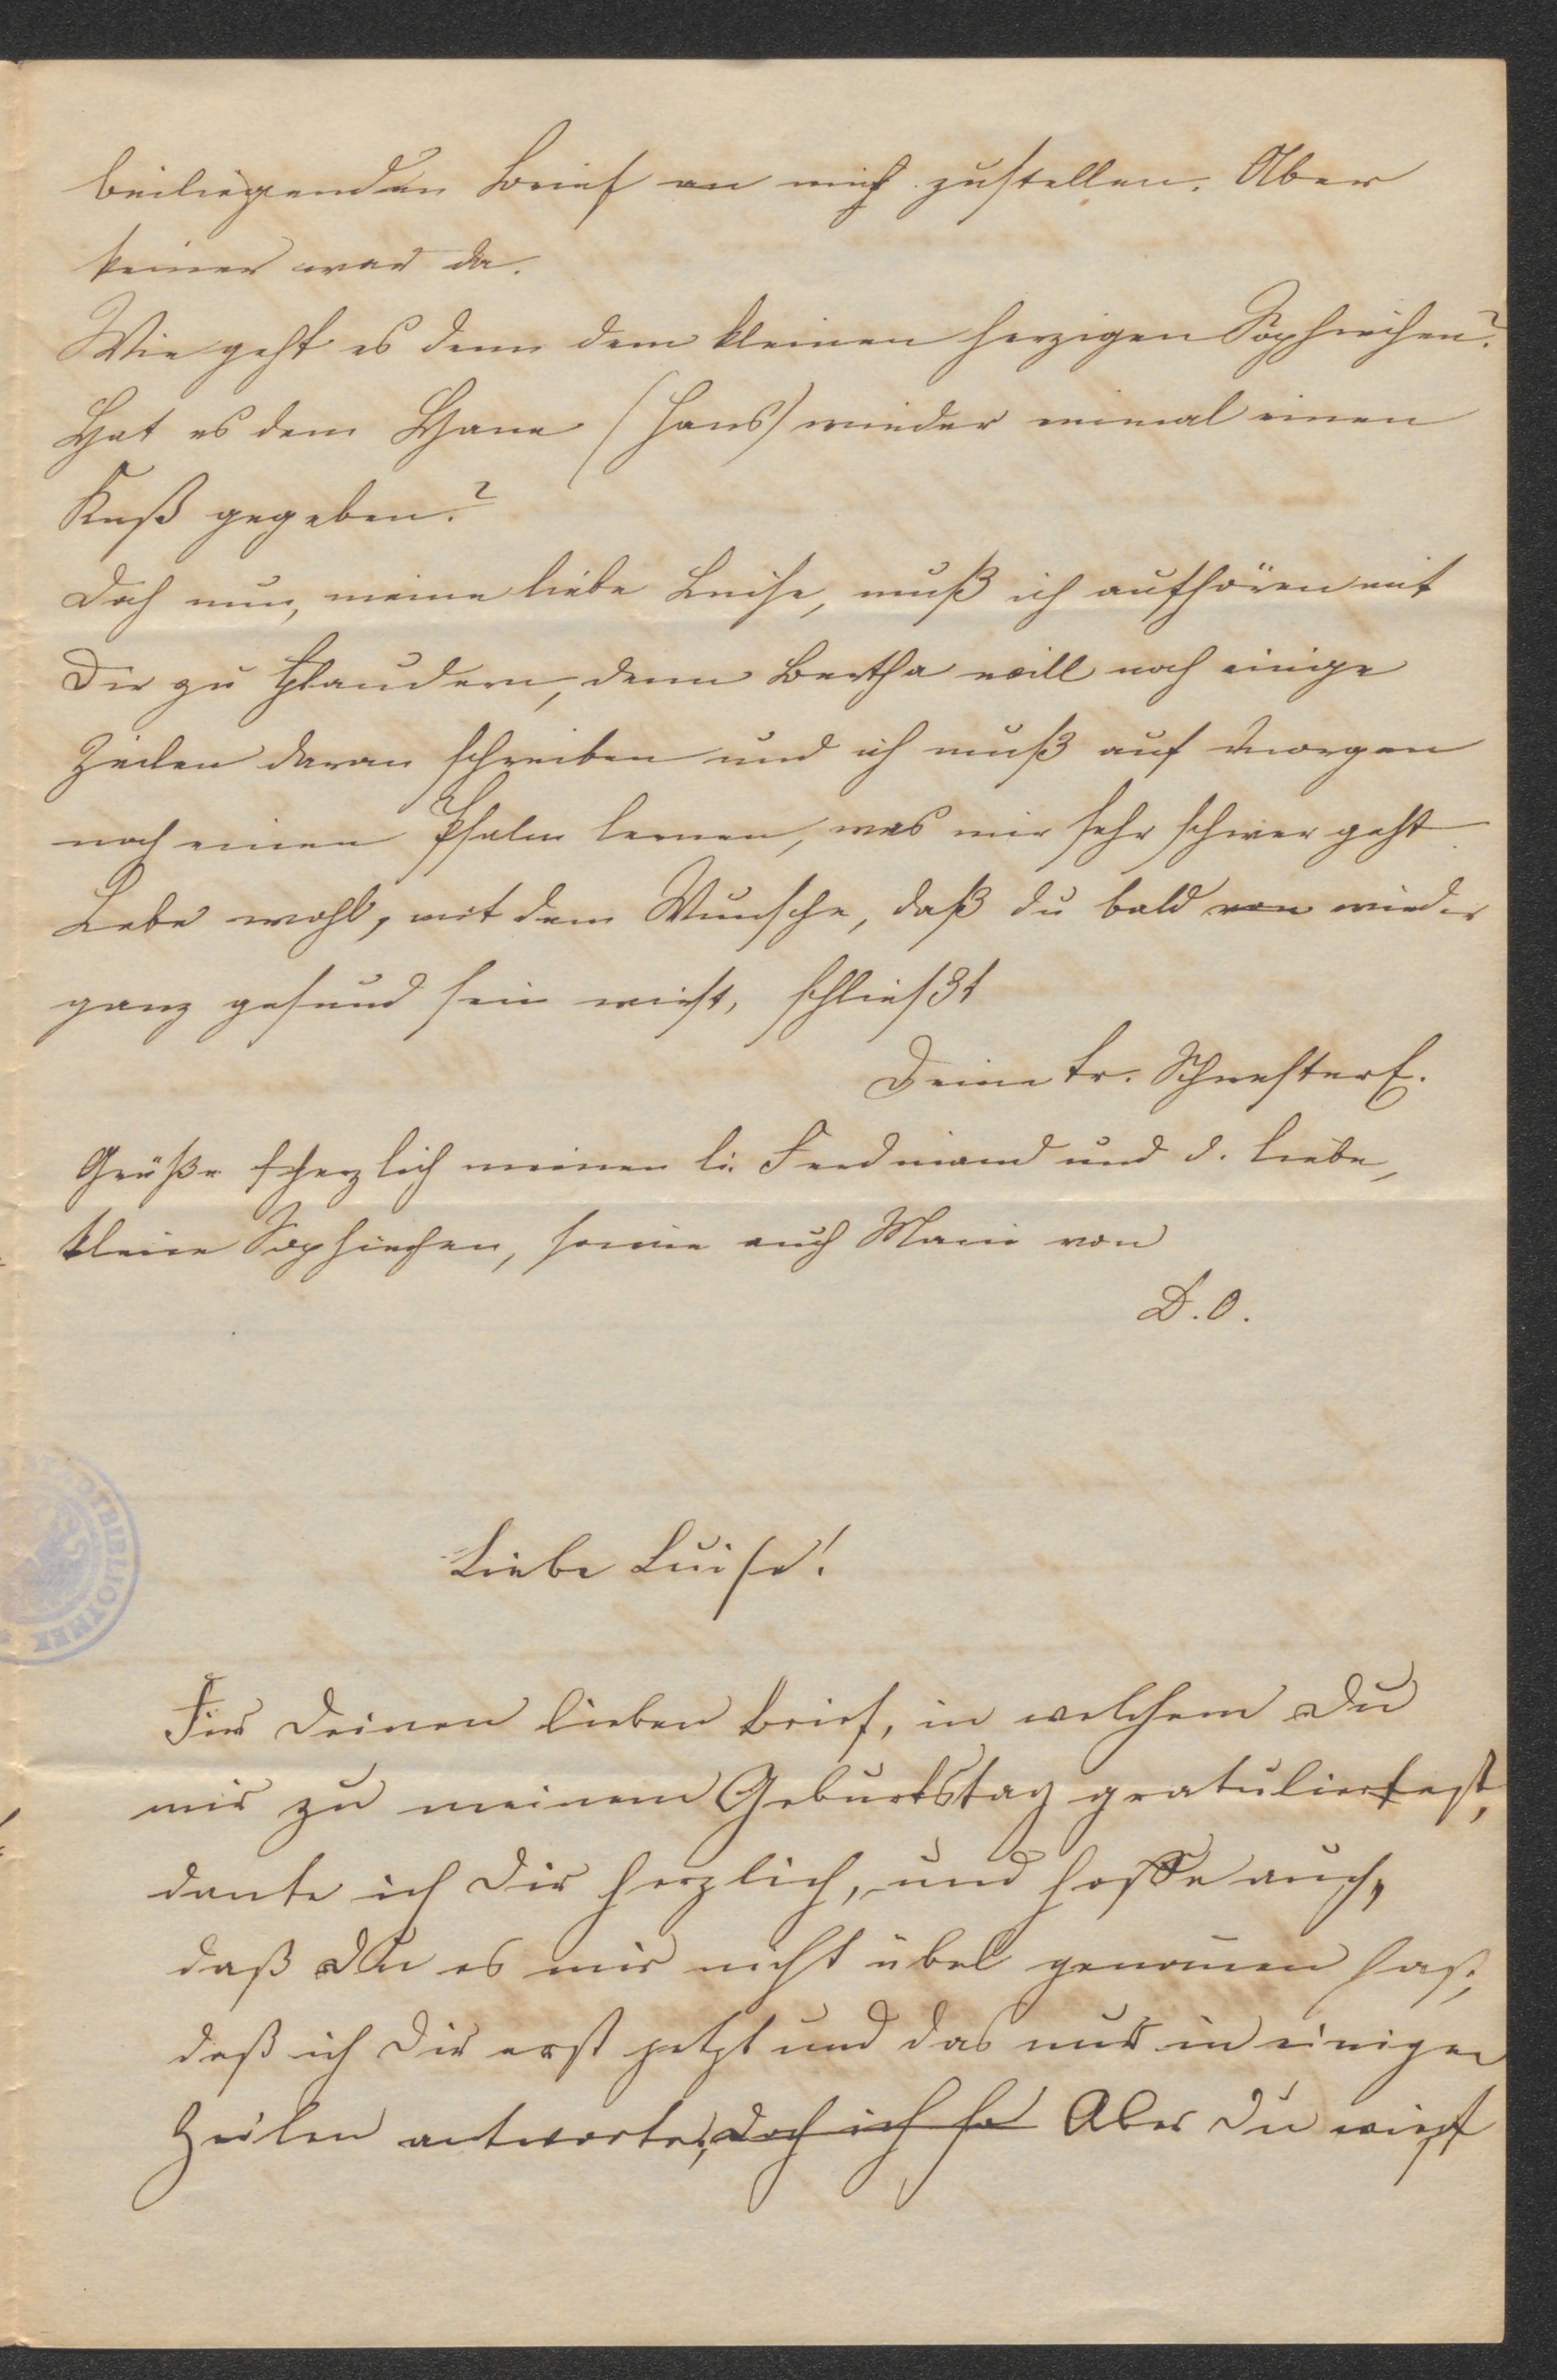 beiliegenden Brief an mich zustellen. Aber
keiner war da.
Wie geht es denn dem kleinen herzigen Sophiechen?
Hat es dem Hane (Hans) wieder einmal einen
Kuß gegeben?
Doch nun, meine liebe Luise, muß ich aufhören mit
Dir zu plaudern, denn Bertha will noch einige
Zeilen daran schreiben und ich muß auf morgen
noch einen Psalm lernen, was mir sehr schwer geht.
Lebe wohl, mit dem Wunsche, daß du bald von wieder
ganz gesund sein wirst, schließt
Deine tr. Schwester E.
Grüße herzlich meinen li. Ferdinand und d. liebe,
kleine Sophiechen, sowie auch Marie von
D. O.
Liebe Luise!
Für Deinen lieben Brief, in welchem Du
mir zu meinem Geburtstag gratuliertest,
danke ich Dir herzlich, und hoffe auch,
daß Du es mir nicht übel genom̄en hast,
daß ich Dir erst jetzt und das nur in einigen
Zeilen antworte, doch ich ha Aber Du wirst
BIBLIOTHEK